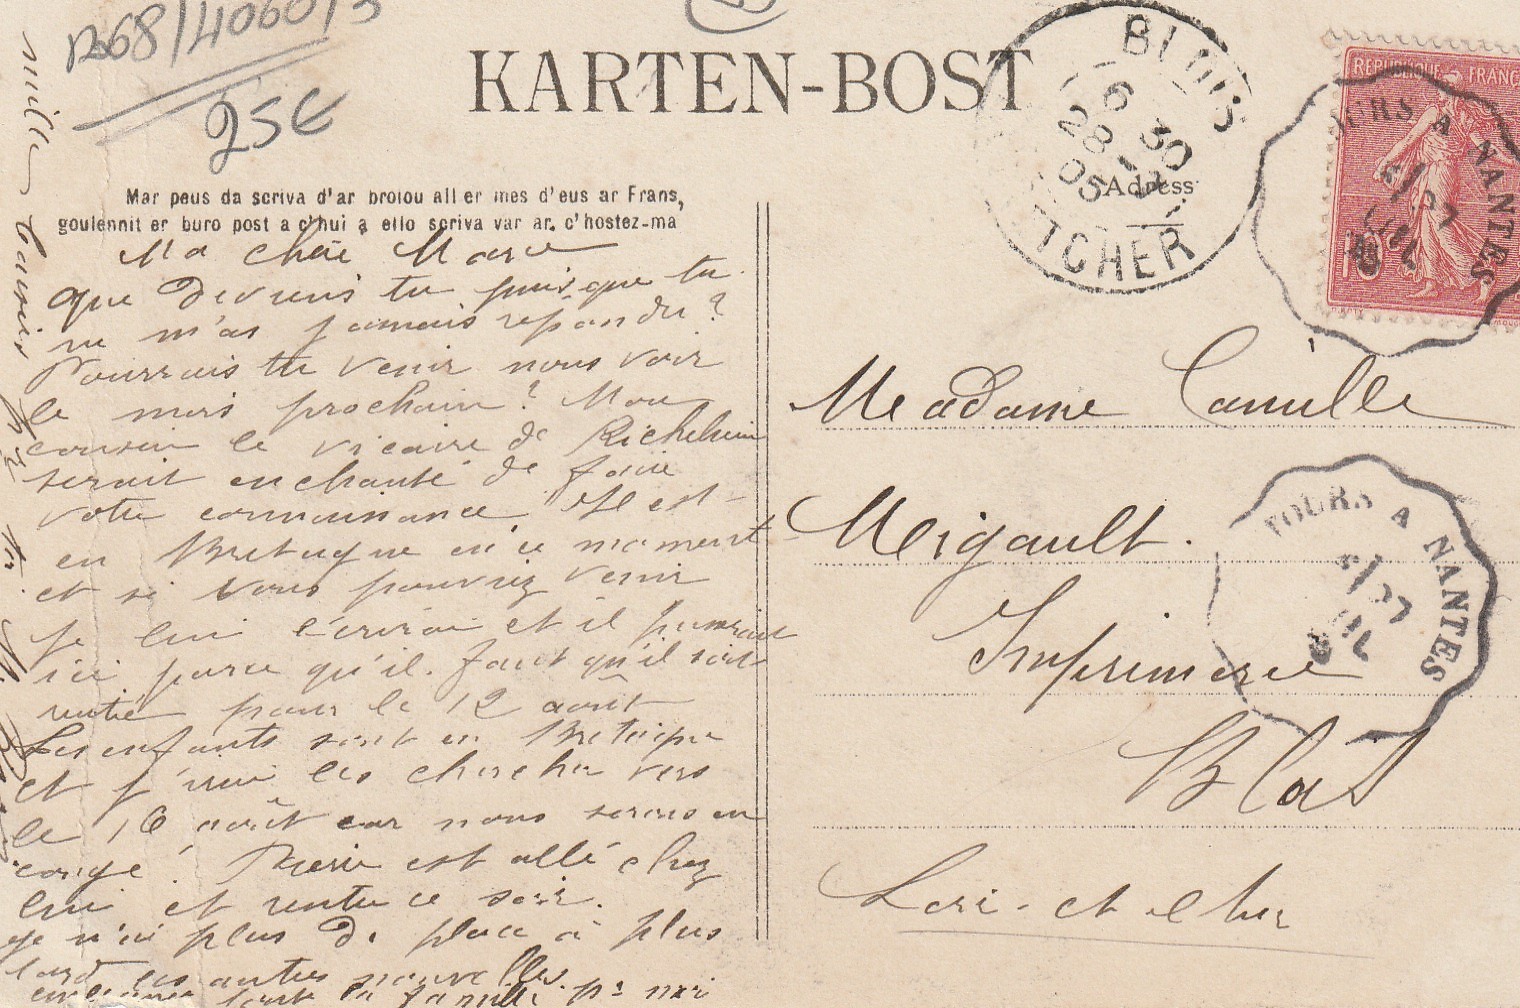 R68/4060/3
25€
KARTEN-BOST
Mar peus da scriva d'ar broiou all er mes d'eus ar Frans,
goulennit er buro post a c'hui a ello scriva var ar c'hostez-ma
Adress
BLOIS
6 30
28
05
T CHER
REPUBLIQUE FRANC
10
TOURS A NANTES
Ma chère Marie
que deviens tu puisque tu
ne m'as jamais répondu?
Pourrais tu venir nous voir
le mois prochain? Mon
cousin le vicaire de Richelieu
serait enchanté de faire
votre connaissance. Il est
en Bretagne en ce moment
et si vous pouviez venir
je lui écrirai et il
ici parce qu'il faut qu'il soit
rentré pour le 12 août
Les enfants sont en Bretagne
et j'irai les chercher vers
le 16 août car nous serons en
congé. est allé chez
lui et rentre ce soir.
je n'ai plus de place à plus
tard les autres nouvelles.
toute la famille pr moi
mille baisers
Madame Camille
Meigault.
Imprimerie
Blois
Loir-et-Cher
TOURS A NANTES